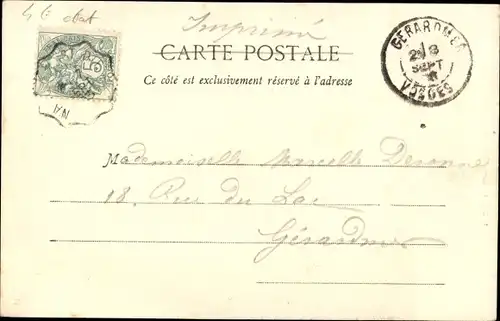 Imprimé
CARTE POSTALE
Ce côté est exclusivement réservé à l'adresse
GERARDMER
28
SEPT
VOSGES
5
Mademoiselle Marcelle
18, Rue du Lac
Gérardmer